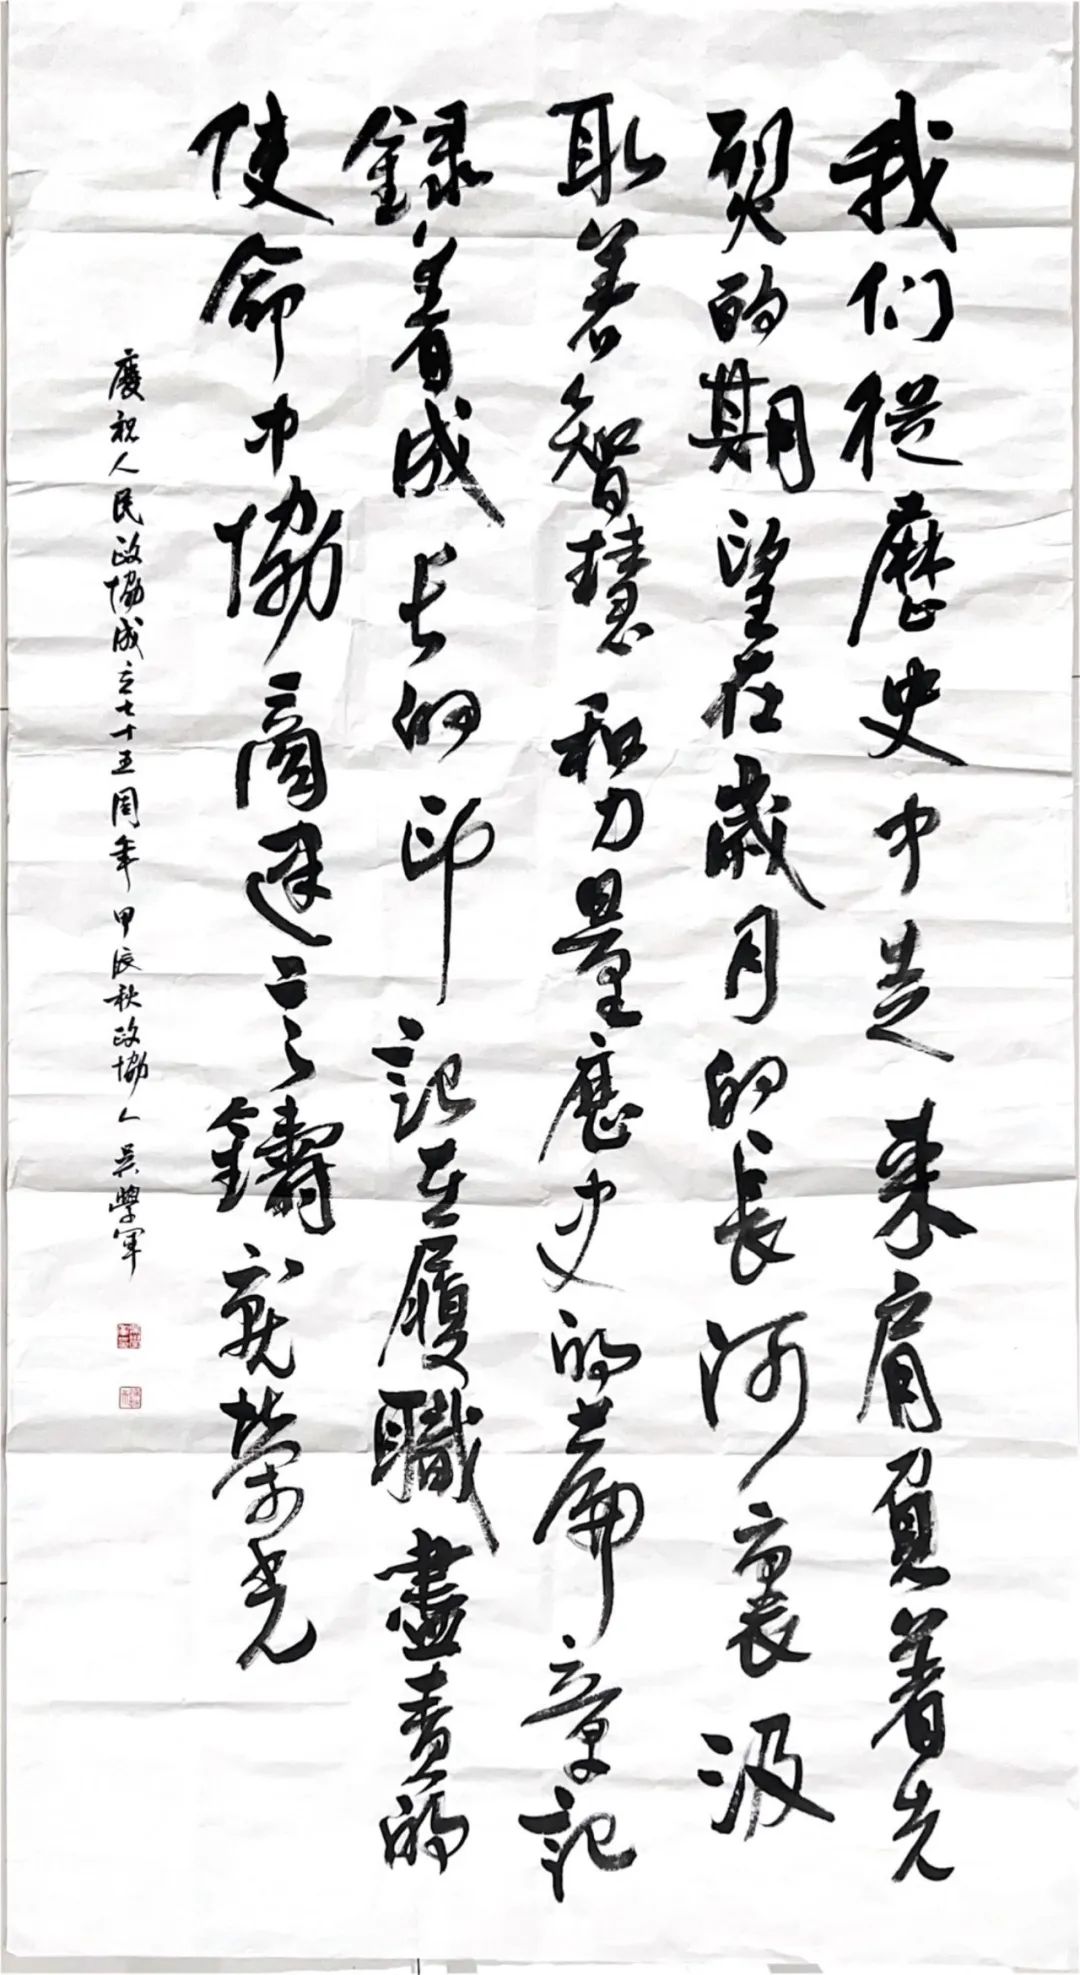 我们從歷史中走來肩負着先
烈的期望在歲月的長河裏汲
取着智慧和力量歷史的篇章記
録着成长的印記在履職盡責的
使命中協商建言鑄就榮光
慶祝人民政協成立七十五周年 甲辰秋政協人吴學军